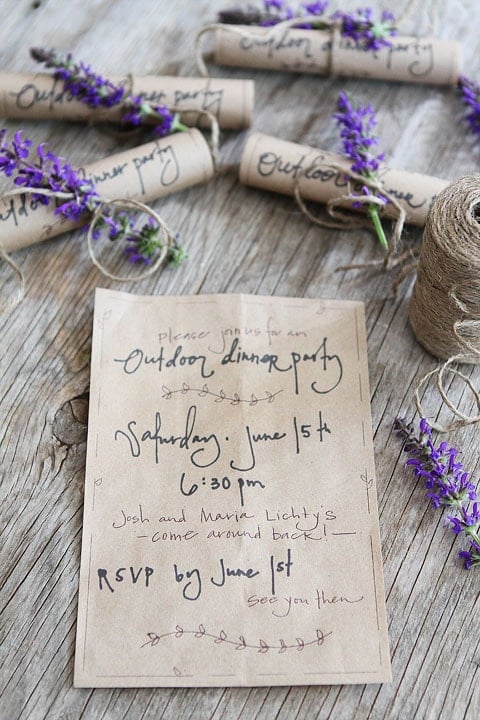 Outdoor dinner party
Outdoor dinner party
dinner party
Outdoor
please join us for an
Outdoor dinner party
Saturday. June 15th
6:30 pm
Josh and Maria Lichty's
-come around back!-
RSVP by June 1st
see you then